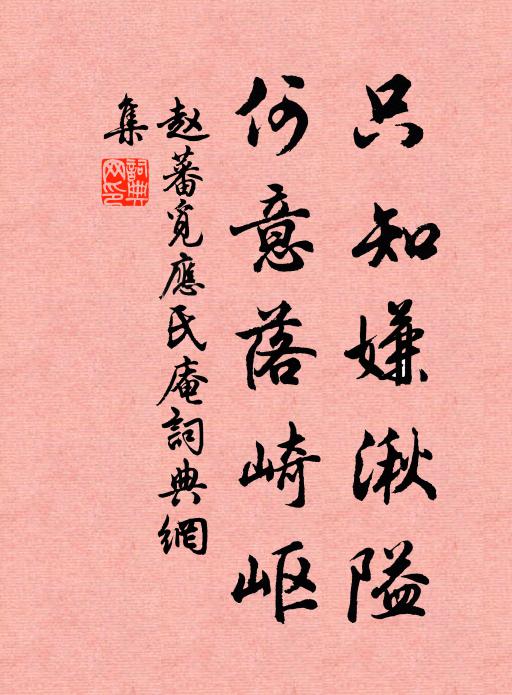 只知嫌湫隘
何意落崎岖
赵蕃觅應氏庵詞典網
集
詞典網印